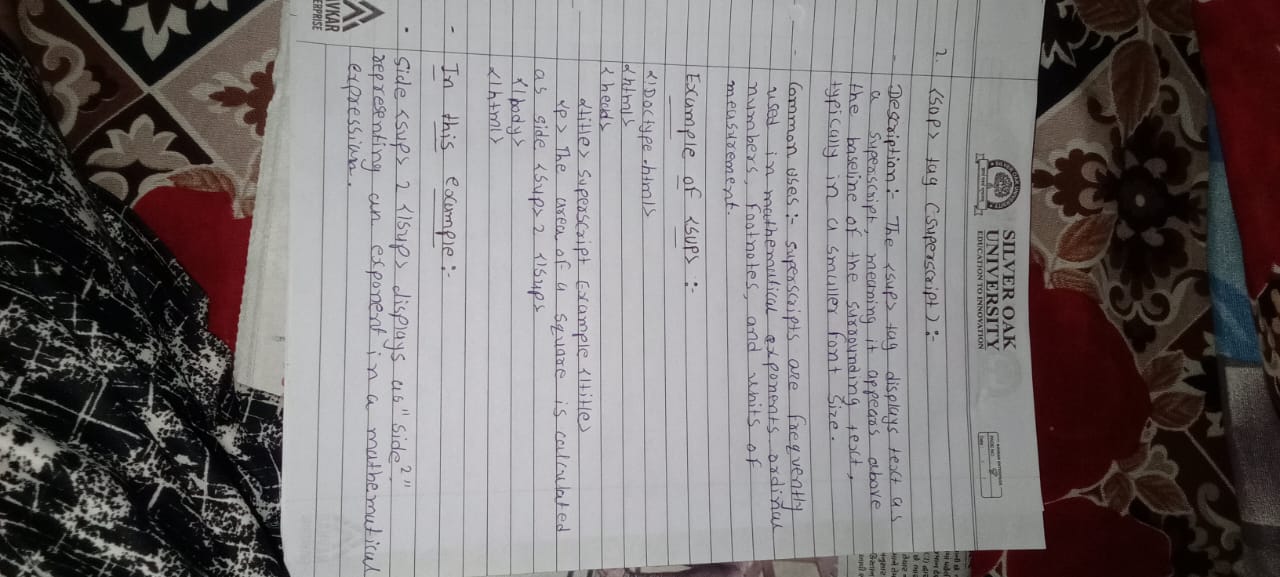 SILVER OAK
UNIVERSITY
EDUCATION TO INNOVATION
PAGE NO.
DATE
2. <sup> tag (superscript) :-
- Description:- The <sup> tag displays text as
a superscript, meaning it appears above
the baseline of the surrounding text,
typicaly in a smaller font size.
- Common uses:- superscripts are frequently
used in mathematical exponents ordinal
numbers, footnotes, and units of
measurement.
Example of <sup> :-
<!Doctype html>
<html>
<head>
<title> superscript Example </title>
<p> The area of a square is calculated
as side <sup> 2 </sup>
</body>
</html>
- In this example:-
• Side <sup> 2 </sup> displays as "side²"
representing an exponent in a mathematical
expression.
AVKAR
ERPRISE